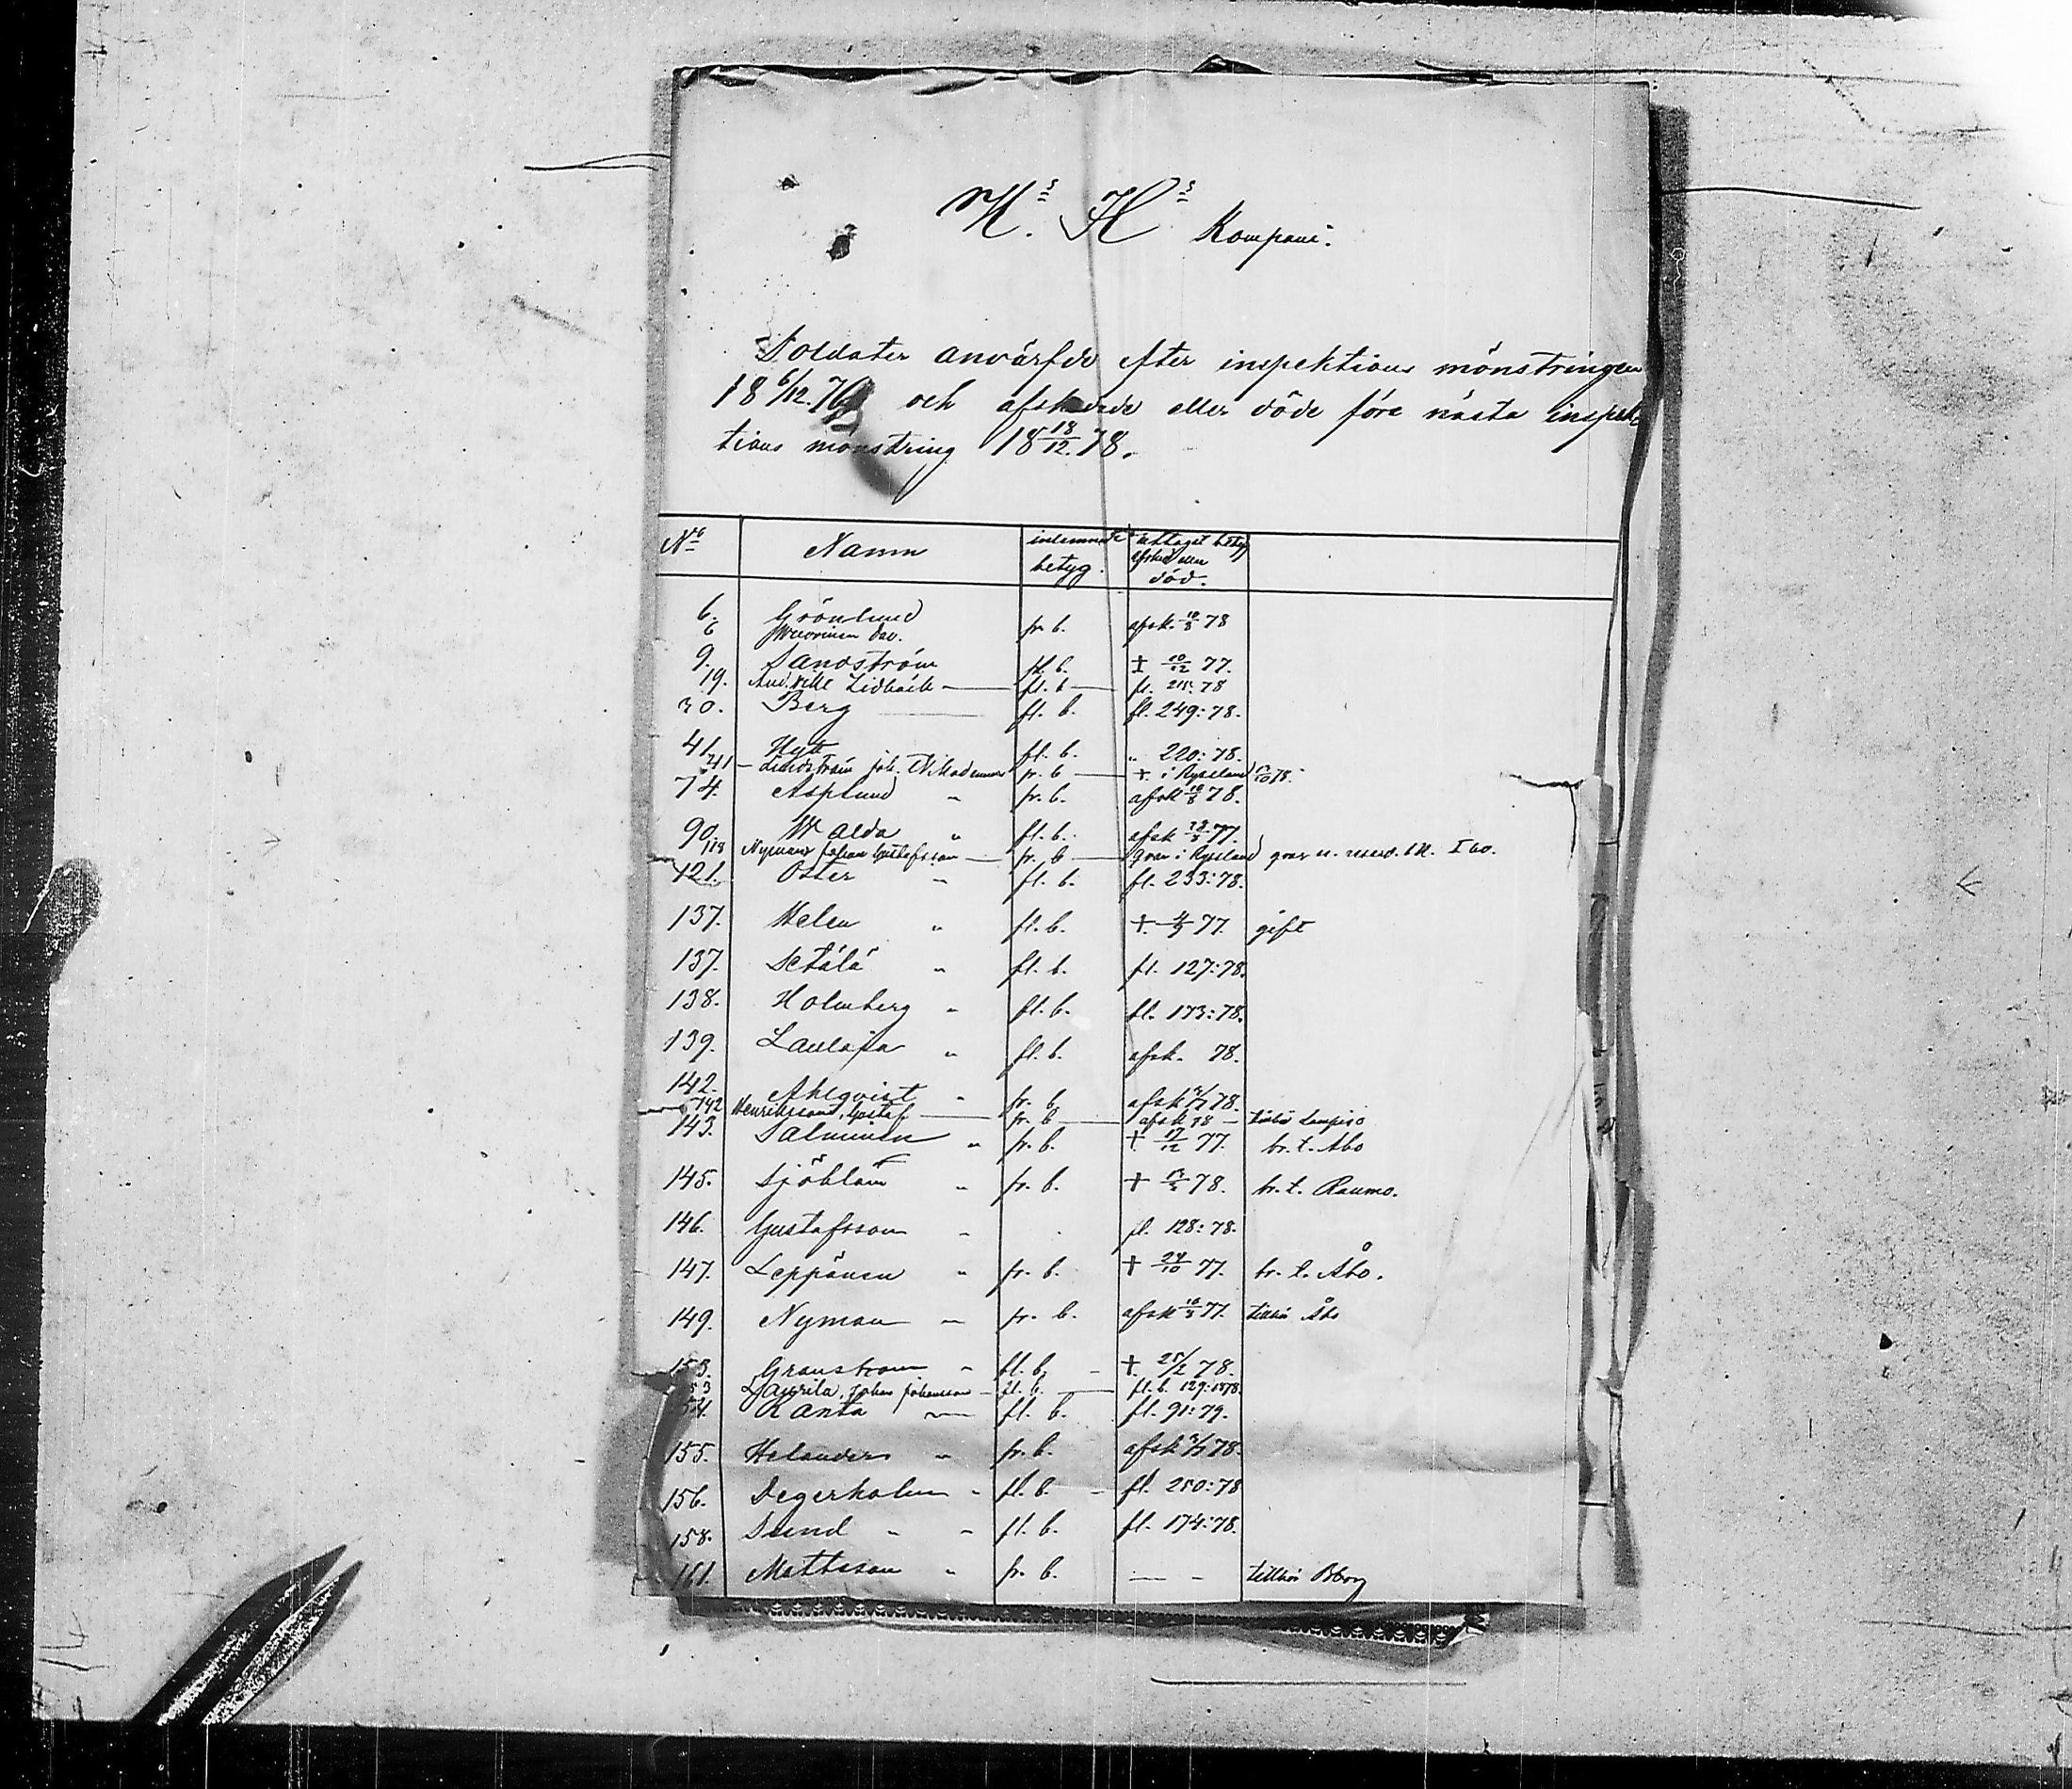 H.s H.s Kompani.
Soldater anvärfde efter inspektions mönstringen
18 6/12. 76 och afskedade eller döde före nästa inspek
tions mönstring 18 18/12. 78.
No Namn betyg. uttaget betyg afsked eller död.
6. Grönlund fr. b. afsk. 10/8 78
6 Dav.
9. Sandström fl. b. † 10/12 77.
19. And. Lidbäck — fl. b — fl. 78
30. Berg — fl. b. fl. 249:78.
41. fl. b. „ 220:78.
41 — Lindström Joh. fr. b — †. i Ryssland 78.
74. Asplund „ fr. b. afsk 10/8 78.
90. Walda „ fl. b. afsk 77.
118 Nyman Johan Gustafsson — fr. b — qvar i Ryssland qvar
121. Öster „ fl. b. fl. 233:78.
137. Helen „ fl. b. †. 77. gift
137. Setälä „ fl. b. fl. 127:78.
138. Holmberg „ fl. b. fl. 173:78.
139. Laulaja „ fl. b. afsk. 78.
142. Ahlqvist „ fr. b. afsk 78.
142 Henriksson, Gustaf — fr. b — afsk 78 —
143. Salminen „ fr. b. † 17/12 77. br. t. Abo
145. Sjöblom „ fr. b. † 78. br. t. Raumo.
146. Gustafsson „ fl. 128:78.
147. Leppänen „ fr. b. † 24/10 77. br. t. Åbo.
149. Nyman „ fr. b. afsk 10/8 77. tillhör Åbo
153. Granstrom „ fl. b. † 25/2 78.
53 Laurila, Johan Johansson — fl. b. — fl. b. 129:1878.
54. Ranta „ fl. b. fl. 91:79.
155. Helander „ fr. b. afsk 78.
156. Degerholm „ fl. b. — fl. 250:78
158. Sund „ „ fl. b. fl. 174:78.
161. Mattsson „ fr. b. — — tillhör Bborg